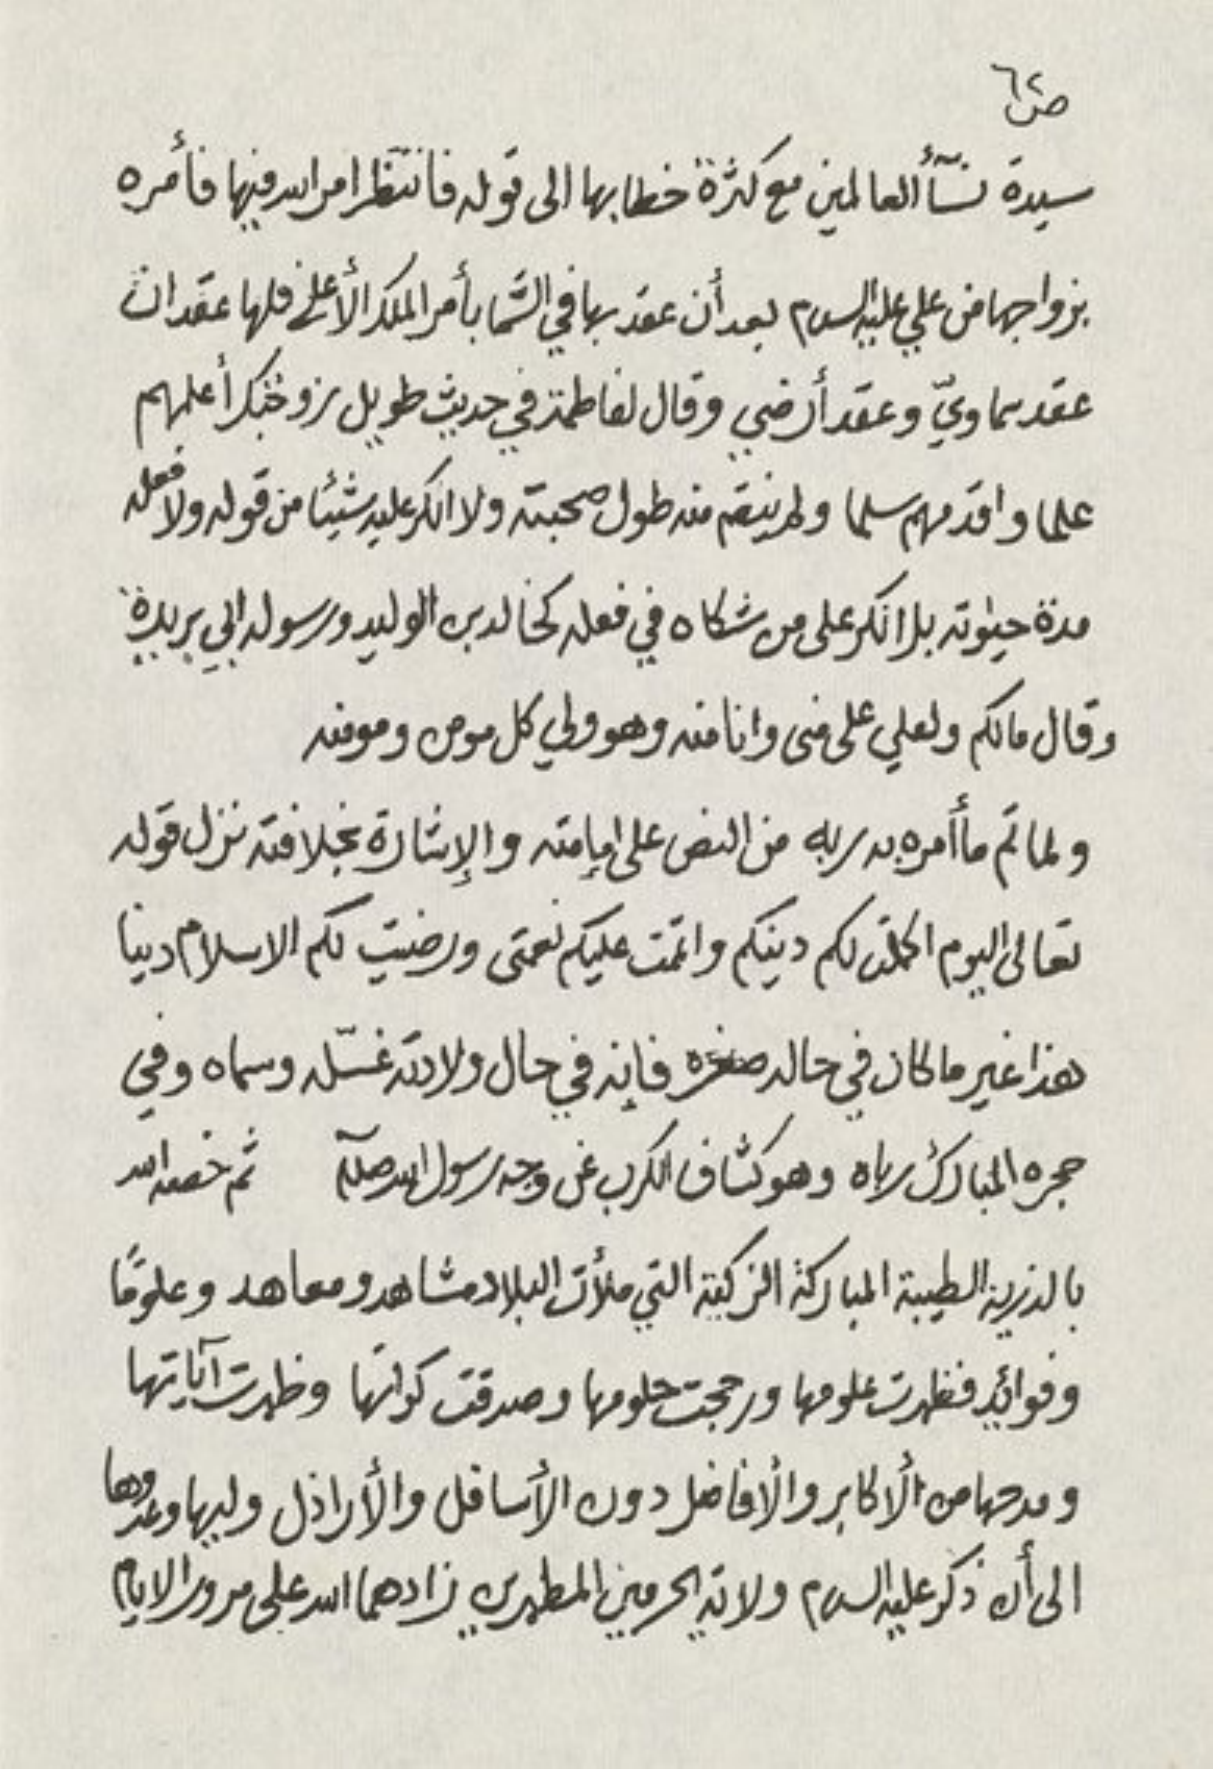 ص٦٢
سيدة نسآأ العالمين مع كثرة خطابها الى قوله فانتظر امر الله فيها فأمره
بزواجها من علي عليه السلام بعد أن عقد بها في السما بأمر الملك الأعلى فلها عقدان
عقد سماويّ وعقد أرضي وقال لفاطمة في حديث طويل زوجتك أعلمهم
علما واقدمهم سلما ولم ينقم منه طول صحبته ولا انكر عليه شيئا من قوله ولا فعله
مدة حيوته بل انكر على من شكاه في فعله كخالد بن الوليد ورسوله ابي بريدة
وقال مالكم ولعلي على منى وانا منه وهو ولي كل مومن ومومنه
ولما تم ما أمره به ربه من النص على امامته والإشارة بخلافته نزل قوله
تعالى اليوم اكملت لكم دينكم واتممت عليكم نعمتى ورضيت لكم الاسلام دينا
هذا غير ما كان في حاله صغره فإنه في حال ولادته غسّله وسماه وفي
حجره المبارك رباه وهو كشاف الكرب عن وجه رسول الله صلعم ثم خصه الله
بالذرية الطيبة المباركة الزكية التي ملأت البلاد مشاهد ومعاهد وعلومًا
وفوائد فظهرت علومها ورجحت حلومها وصدقت كراماتها وظهرت آياتها
ومدحها من الأكابر والأفاضل دون الأسافل والأراذل وليها وعدوها
الى أن ذكر عليه السلام ولاية الحرمين المطهرين زادهما الله على مرور الايام